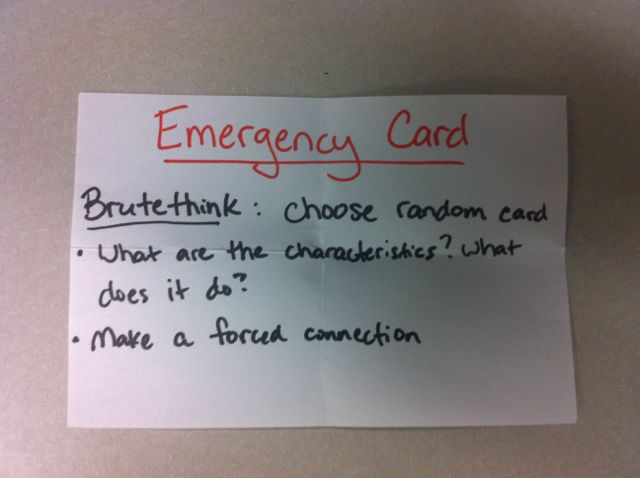 Emergency Card
Brutethink: choose random card
• What are the characteristics? What
does it do?
• Make a forced connection